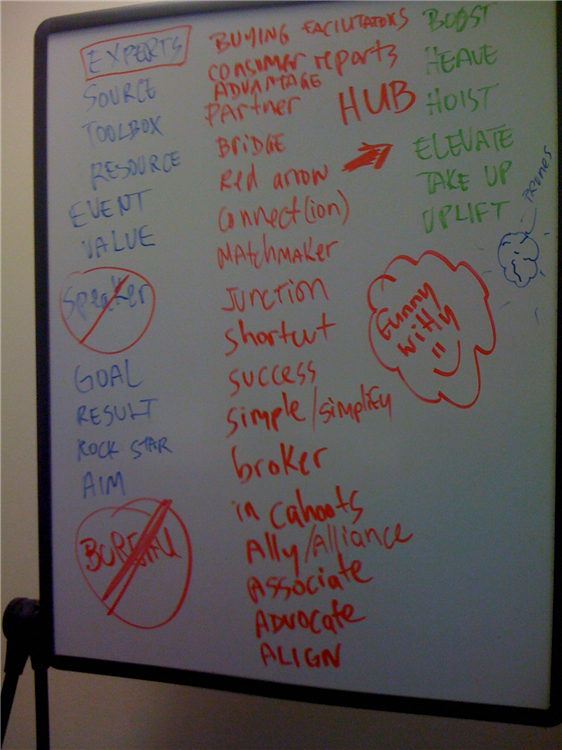 EXPERTS
SOURCE
TOOLBOX
RESOURCE
EVENT
VALUE
Speaker
GOAL
RESULT
ROCK STAR
AIM
BUREAU
BUYING FACILITATORS
consumer reports
ADVANTAGE
partner
HUB
BRIDGE
Red arrow
connect(ion)
Matchmaker
Junction
shortcut
success
simple/simplify
broker
in cahoots
Ally/Alliance
Associate
ADVOCATE
ALIGN
BOOST
HEAVE
HOIST
ELEVATE
TAKE UP
UPLIFT
Funny
witty